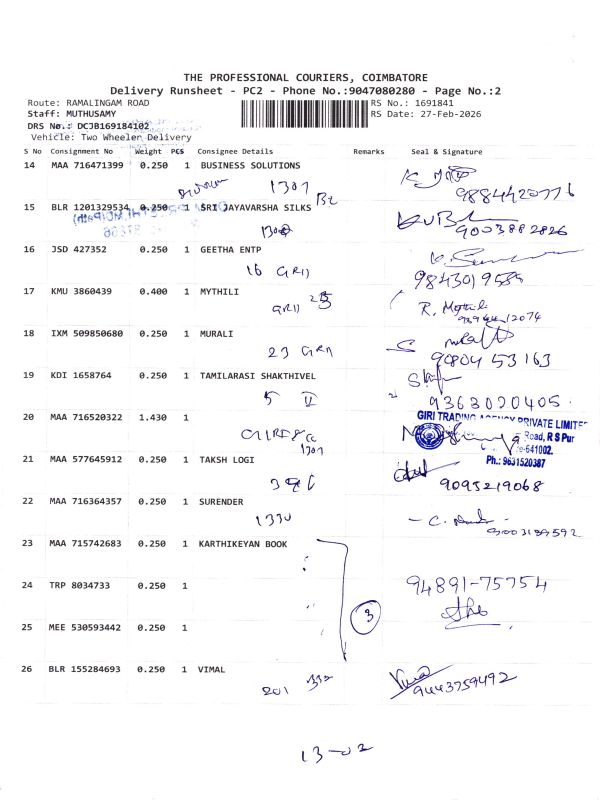 THE PROFESSIONAL COURIERS, COIMBATORE
Delivery Runsheet - PC2 - Phone No.:9047080280 - Page No.:2
Route: RAMALINGAM ROAD RS No.: 1691841
Staff: MUTHUSAMY RS Date: 27-Feb-2026
DRS No.: DCJB169184102
Vehicle: Two Wheeler Delivery
S No Consignment No Weight PCS Consignee Details Remarks Seal & Signature
14 MAA 716471399 0.250 1 BUSINESS SOLUTIONS
1307 9884420776
15 BLR 1201329534 0.250 1 SRI JAYAVARSHA SILKS
9003882826
16 JSD 427352 0.250 1 GEETHA ENTP
16 GRD 9843019585
17 KMU 3860439 0.400 1 MYTHILI
R. Mythili
18 IXM 509850680 0.250 1 MURALI
23 90804 53163
19 KDI 1658764 0.250 1 TAMILARASI SHAKTHIVEL
5 II 9363020405
20 MAA 716520322 1.430 1
GIRI TRADING AGENCY PRIVATE LIMITE
Road, R S Pur
-641002.
Ph.: 9631520387
1307
21 MAA 577645912 0.250 1 TAKSH LOGI
9095219068
22 MAA 716364357 0.250 1 SURENDER
1330 9003189592
23 MAA 715742683 0.250 1 KARTHIKEYAN BOOK
24 TRP 8034733 0.250 1
94891-75754
3
25 MEE 530593442 0.250 1
26 BLR 155284693 0.250 1 VIMAL
201 9443759492
13-02